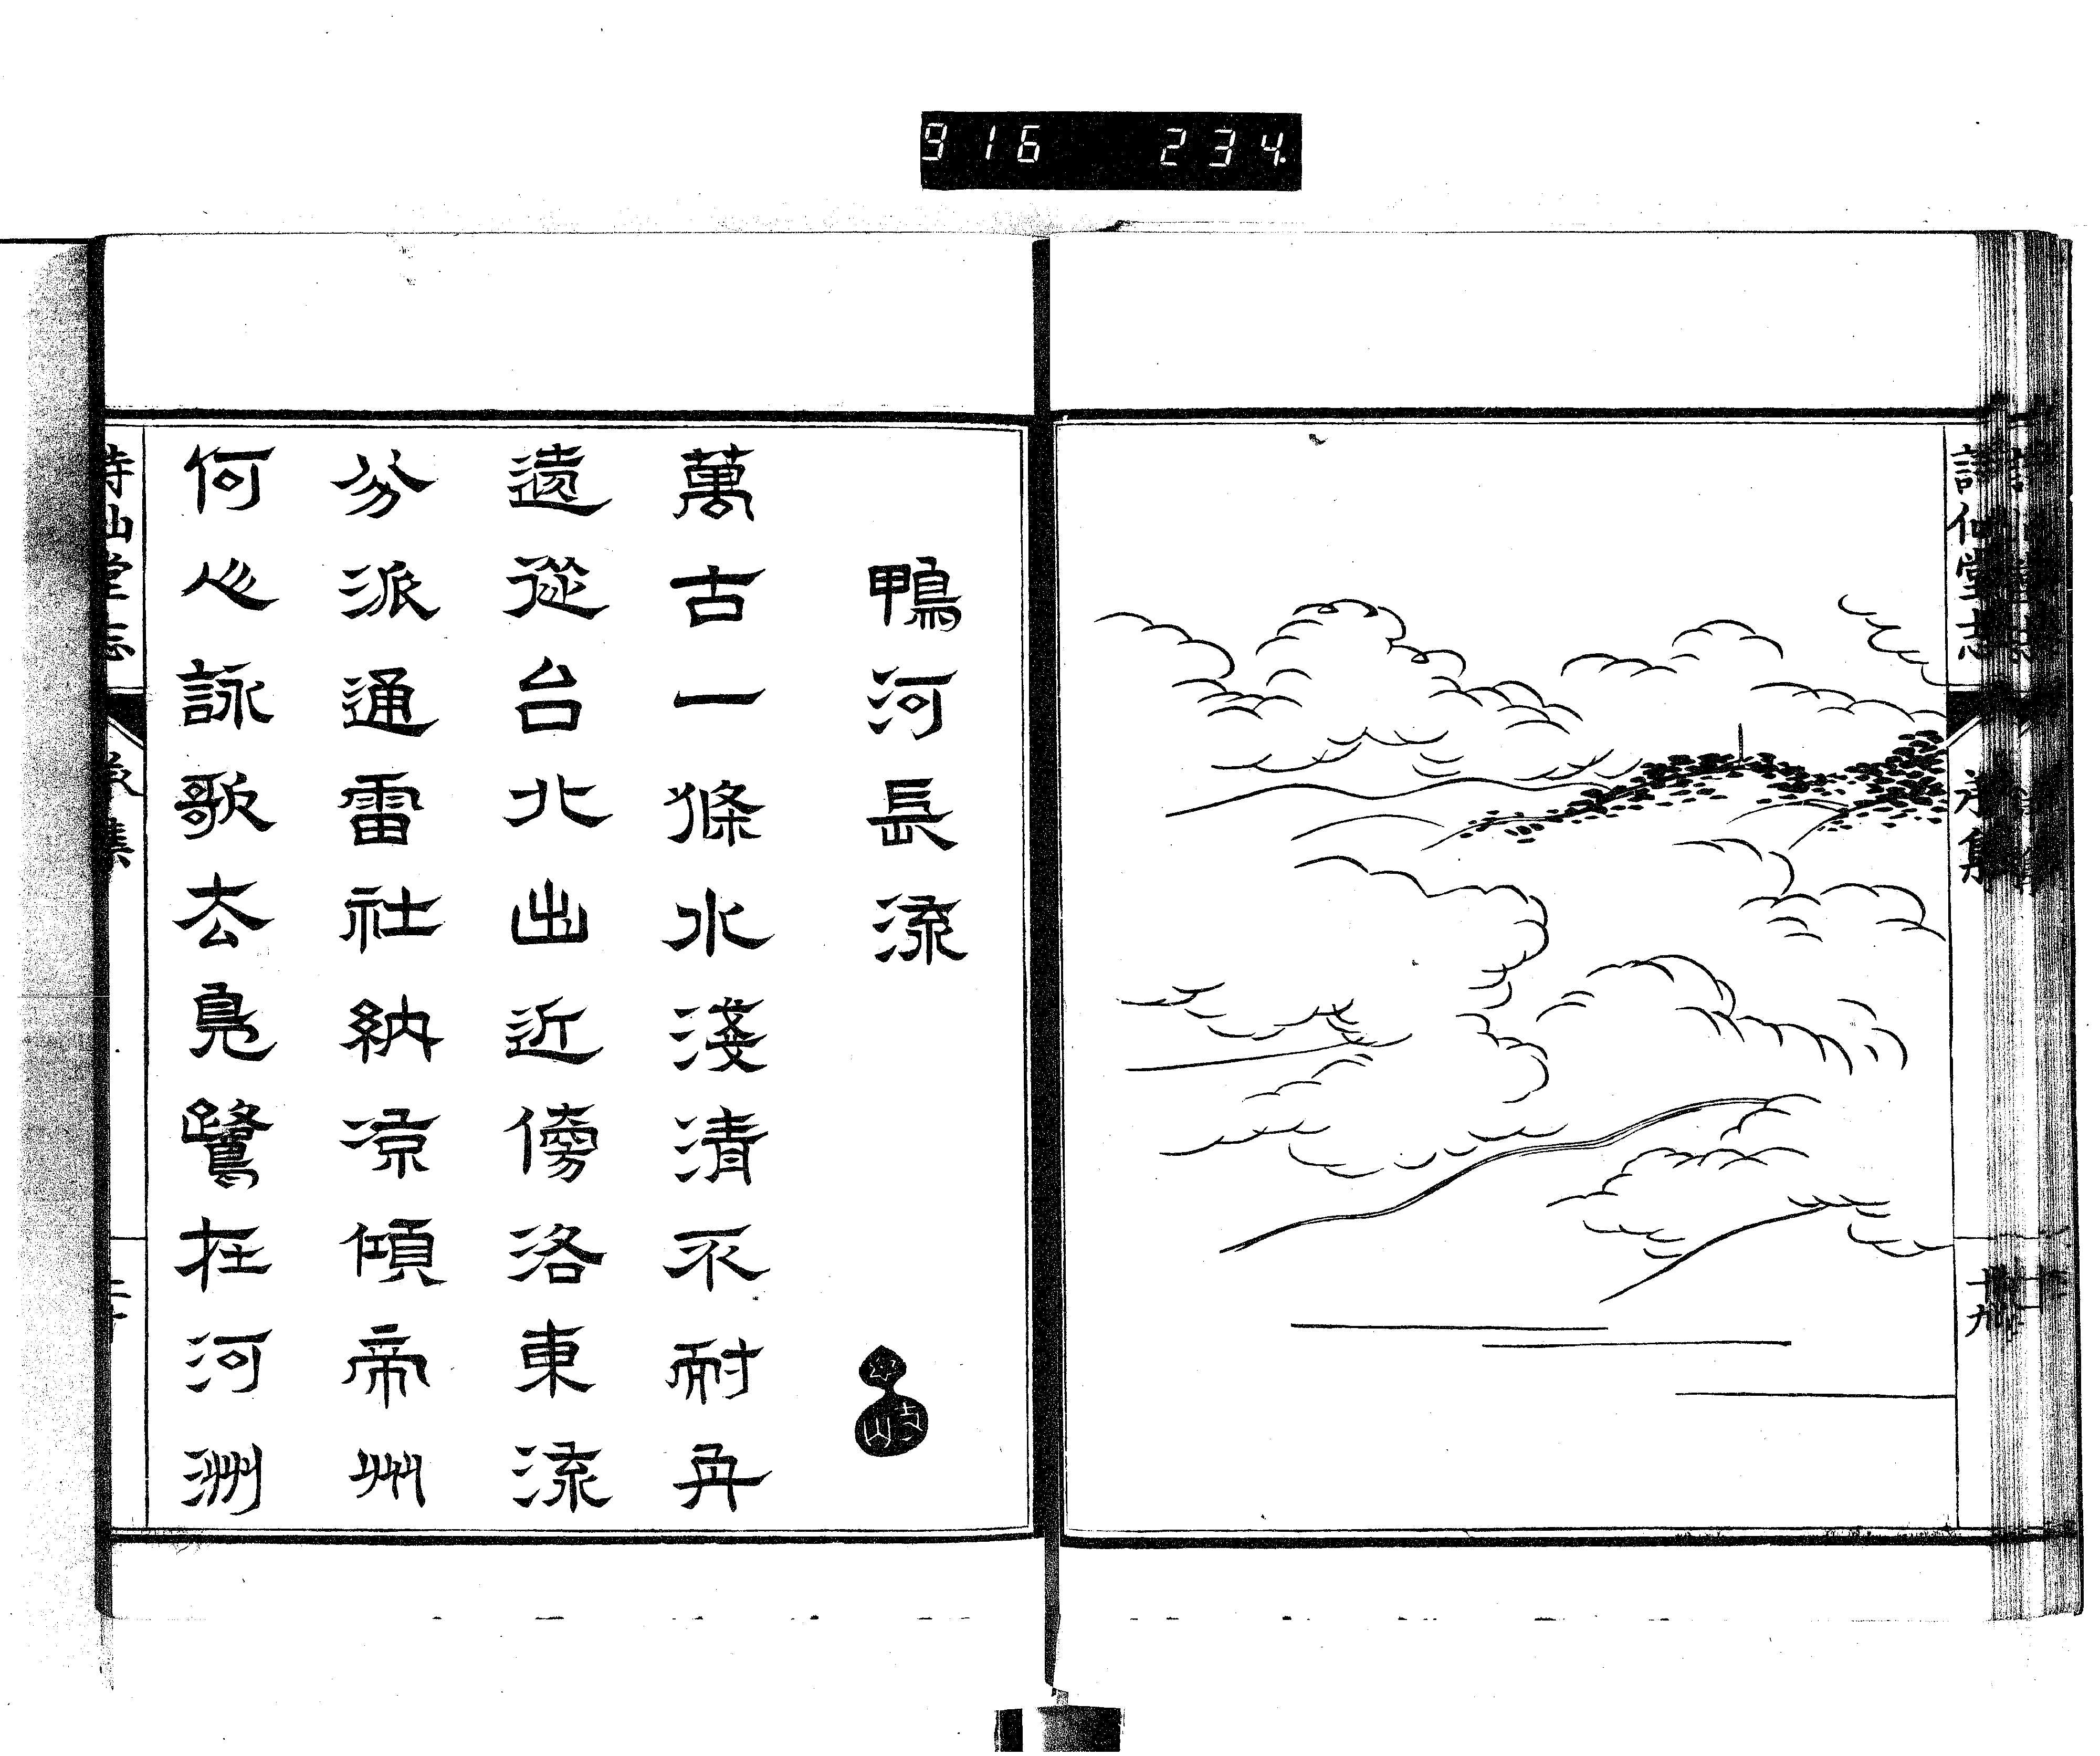 916 234
詩仙堂志
承集
十九
鴨河長流
萬古一條水淺清不耐舟
遠從台北出近傍洛東流
分派通雷社納凉傾帝州
何心詠歌去鳧鷺在河洲
詩仙堂志
承集
二十